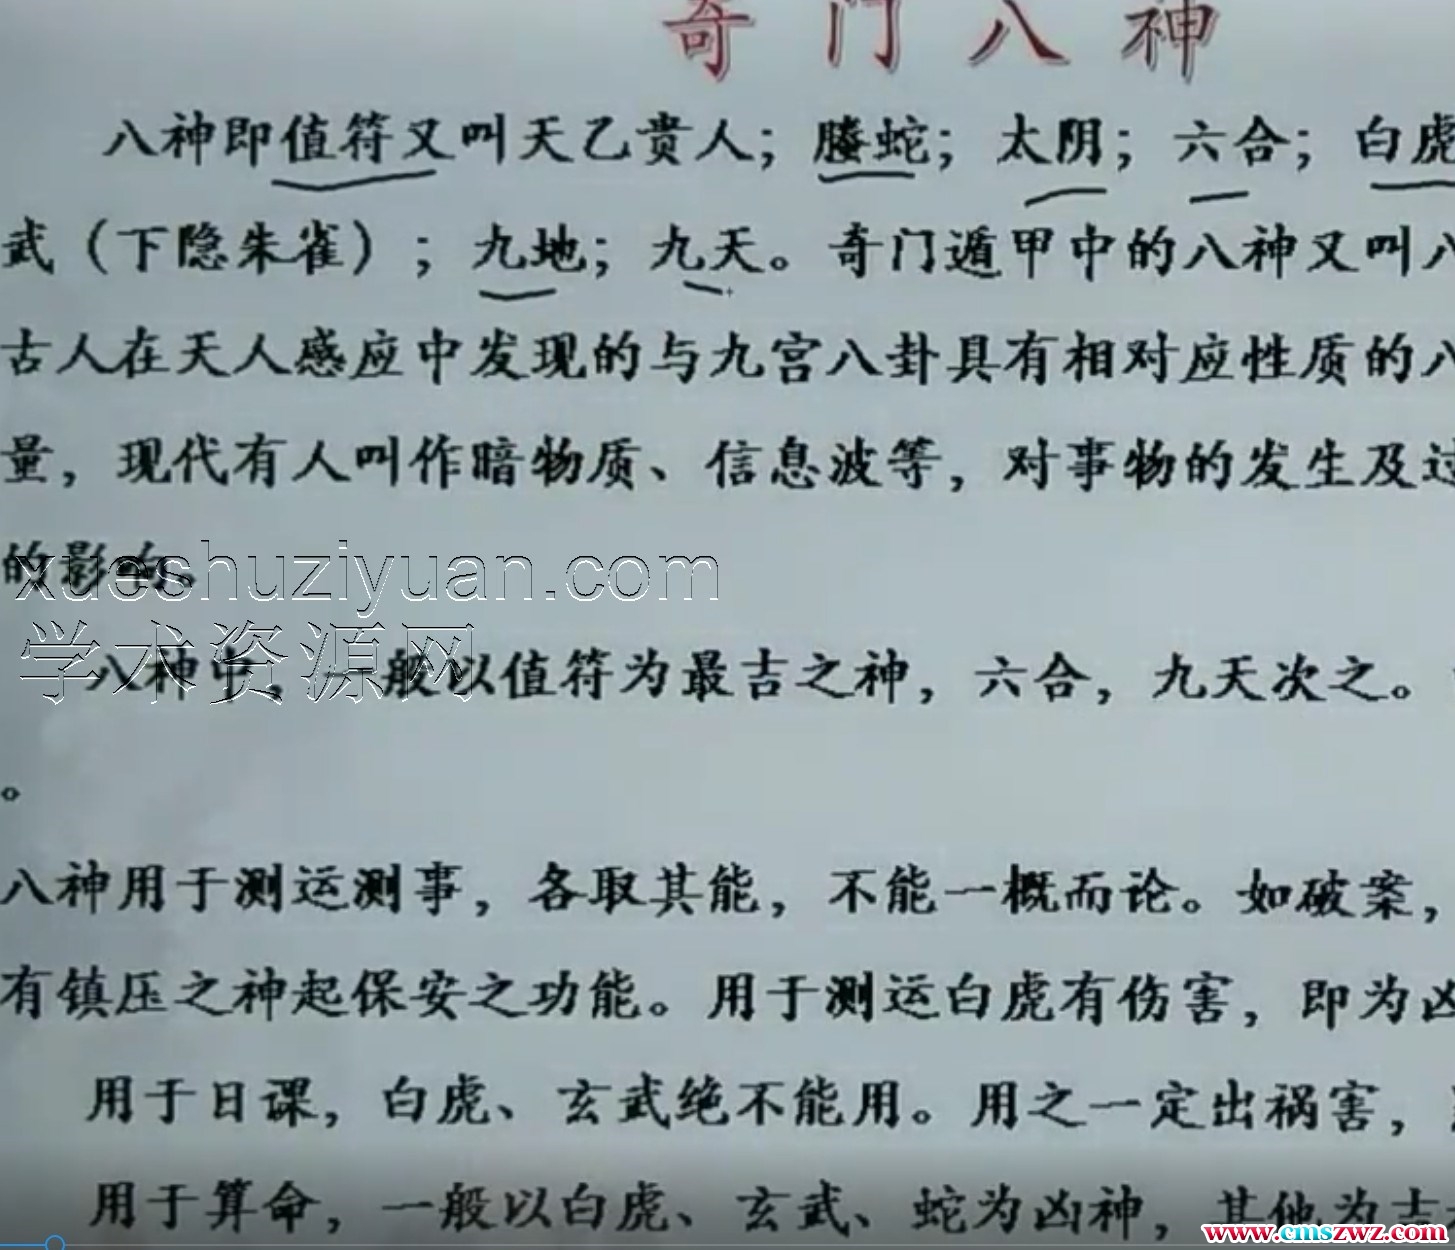 奇门八神
八神即值符又叫天乙贵人；螣蛇；太阴；六合；白虎
武（下隐朱雀）；九地；九天。奇门遁甲中的八神又叫八
古人在天人感应中发现的与九宫八卦具有相对应性质的八
量，现代有人叫作暗物质、信息波等，对事物的发生及过
的影响。
xueshuziyuan.com
学术资源网
八神中，一般以值符为最吉之神，六合，九天次之。
。
八神用于测运测事，各取其能，不能一概而论。如破案，
有镇压之神起保安之功能。用于测运白虎有伤害，即为凶
用于日课，白虎、玄武绝不能用。用之一定出祸害，
用于算命，一般以白虎、玄武、蛇为凶神，其他为吉
www.cmszwz.com